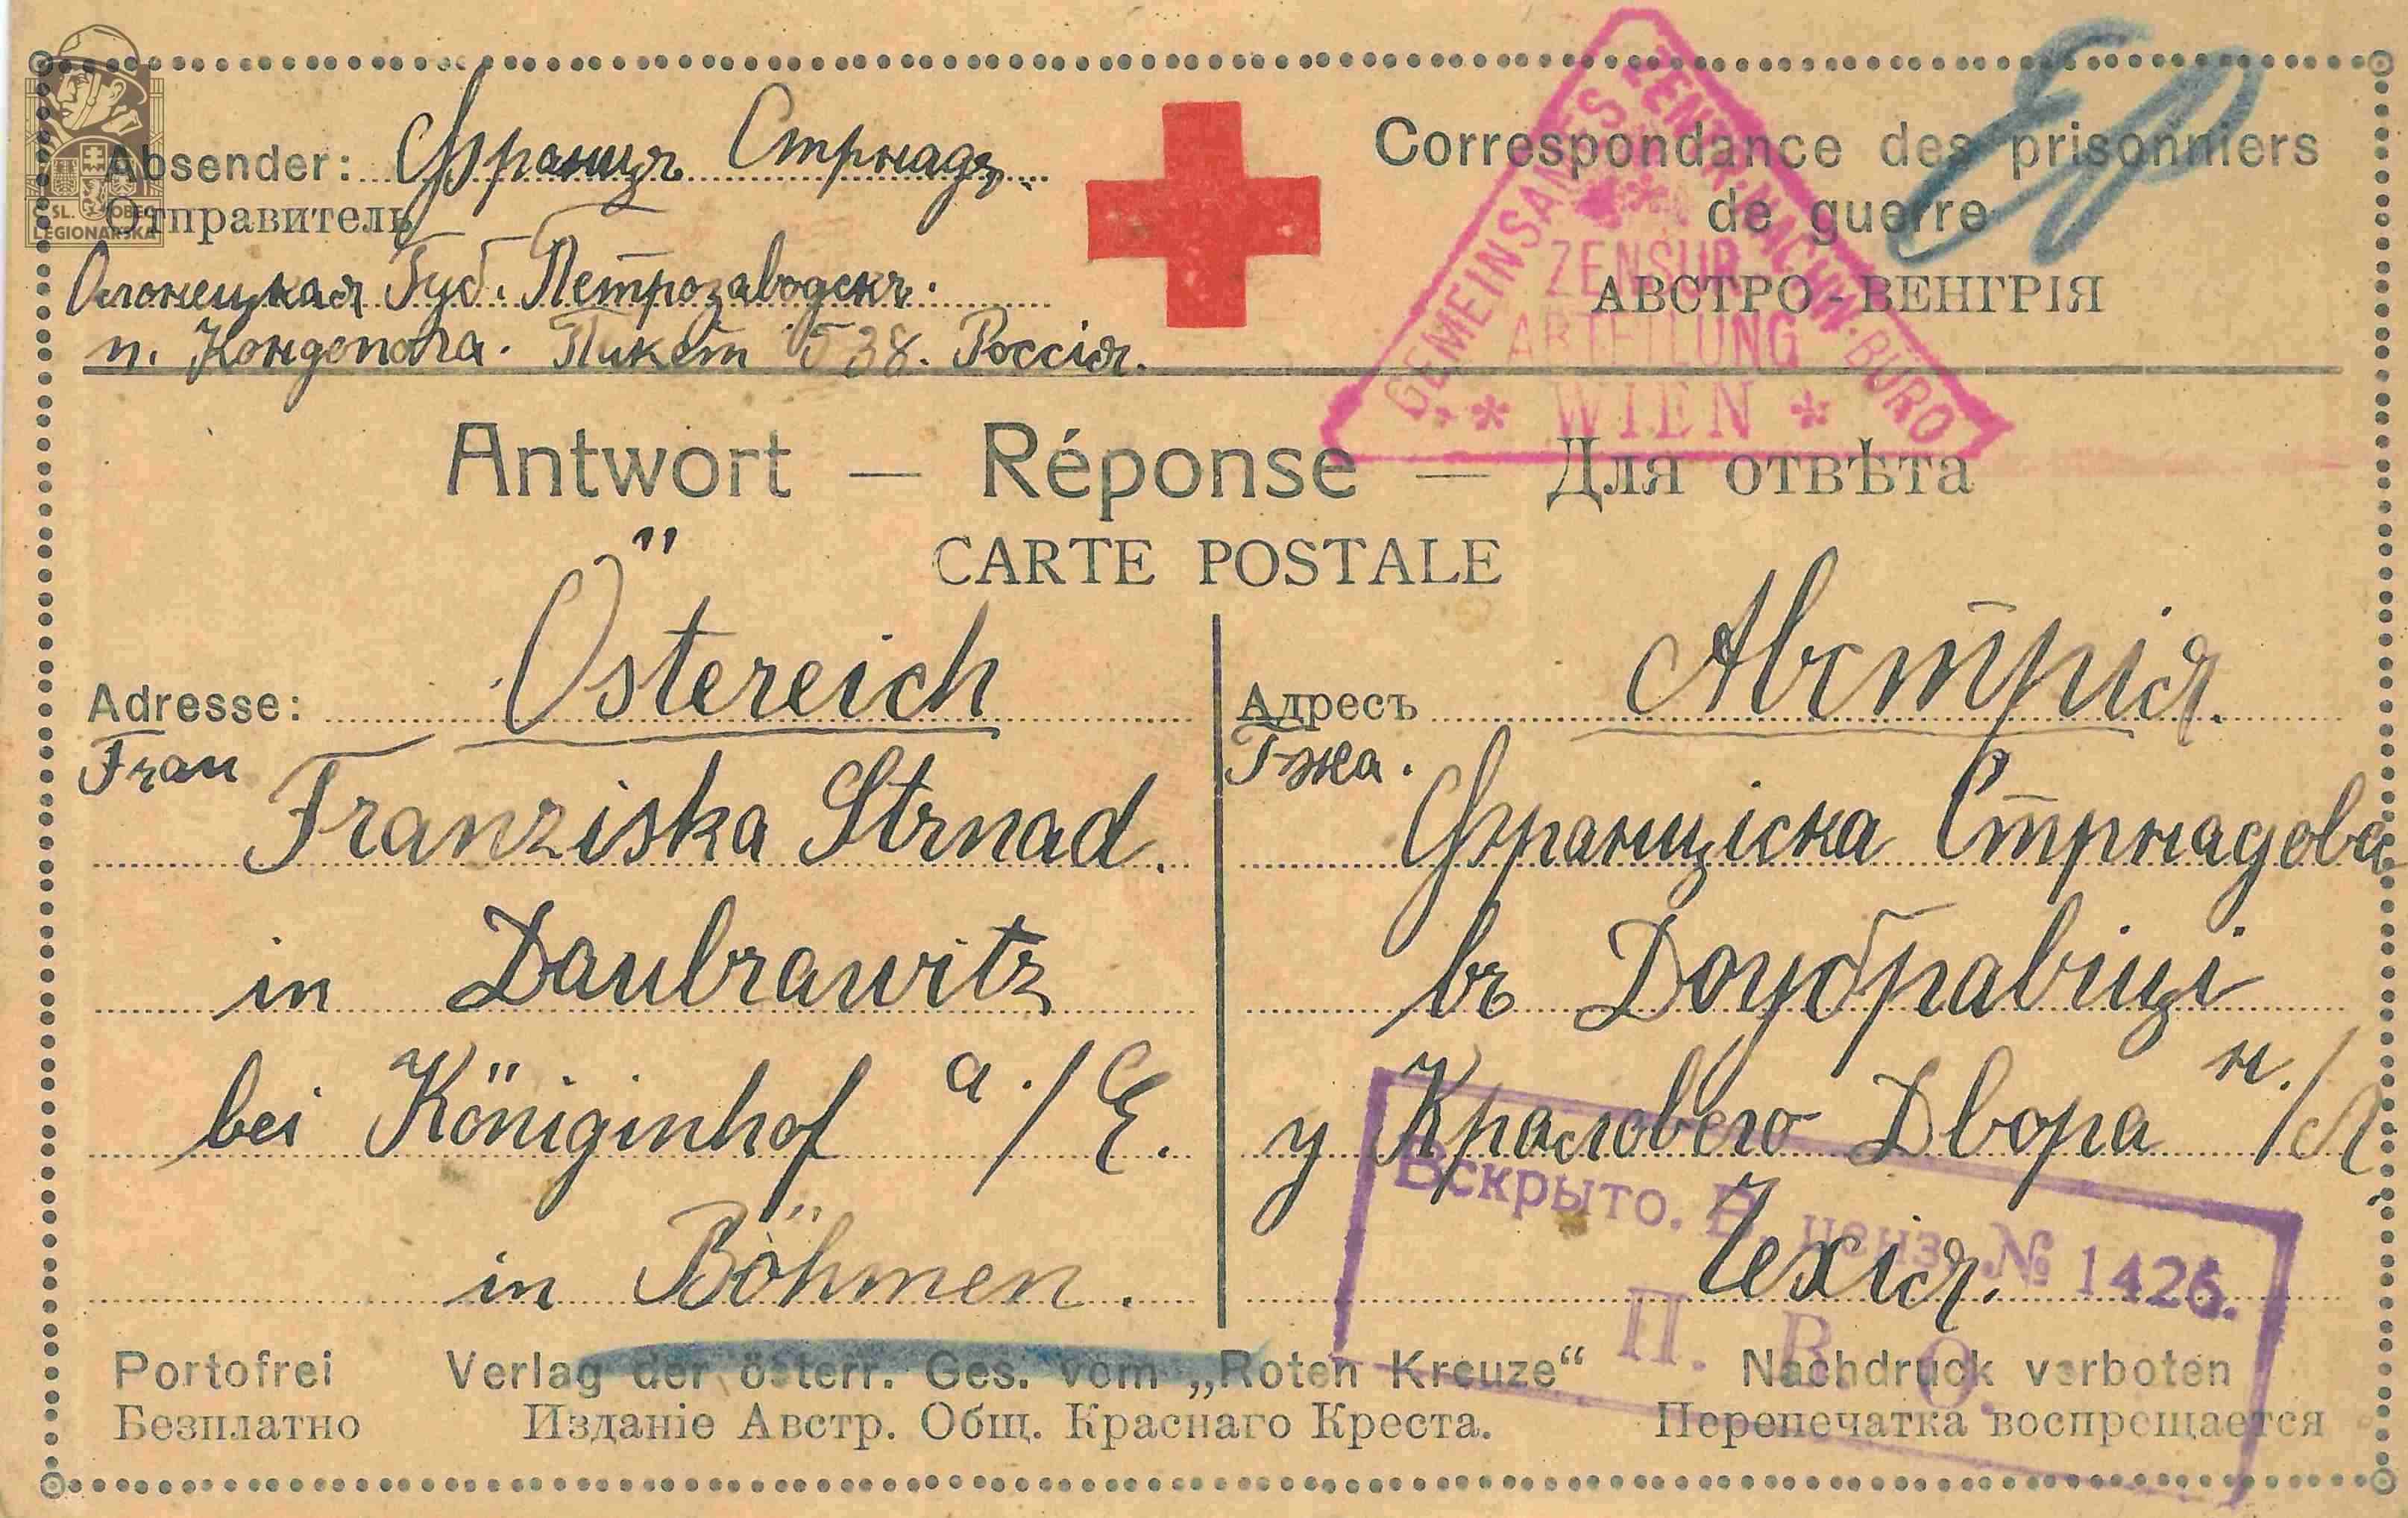 Absender: Францъ Стрнадъ
Отправитель
Олонецкая Губ. Петрозаводскъ.
п. Кондопога. Пикет 538. Россія.
Correspondance des prisonniers
de guerre
АВСТРО-ВЕНГРІЯ
GEMEINSAMES ZENTR. NACHW. BÜRO
ZENSUR
ABTEILUNG
* WIEN *
Č.SL. OBEC
LEGIONÁŘSKÁ
Antwort — Réponse — Для отвѣта
CARTE POSTALE
Adresse: Östereich
Frau
Franziska Strnad.
in Daubrawitz
bei Königinhof a./E.
in Böhmen.
Адресъ Австрія.
Г-жа.
Франціска Стрнадова
въ Доубравіці
у Кралового Двора н./Л.
Чехія.
Вскрыто. В. ценз. № 1426.
П. В. О.
Portofrei Verlag der österr. Ges. vom „Roten Kreuze“ Nachdruck verboten
Безплатно Изданіе Австр. Общ. Краснаго Креста. Перепечатка воспрещается